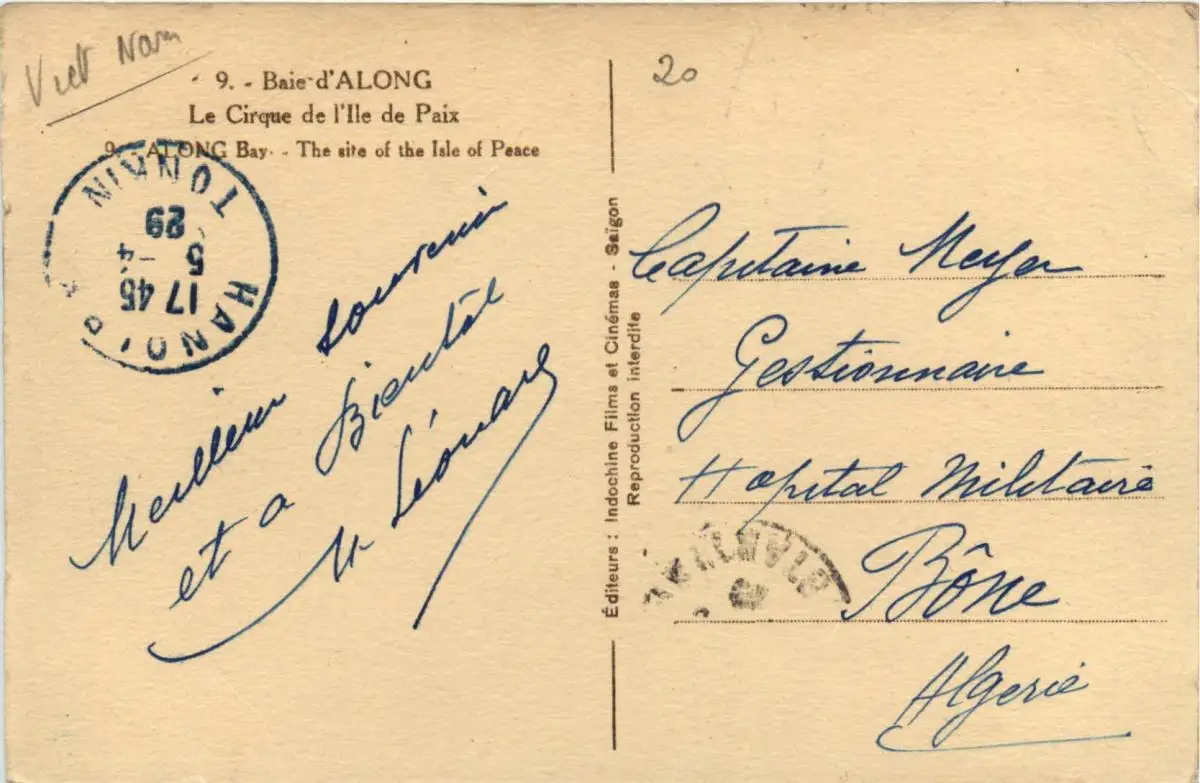 Viet Nam
9. - Baie d'ALONG
Le Cirque de l'Ile de Paix
9. - ALONG Bay. - The site of the Isle of Peace
HANOI TONKIN
17 45
5 - 4
29
Meilleur souvenir
et a Bientôt
Léonard
Éditeurs : Indochine Films et Cinémas - Saïgon
Reproduction interdite
20
Capitaine Meyer
Gestionnaire
Hopital Militaire
Bône
Algerie